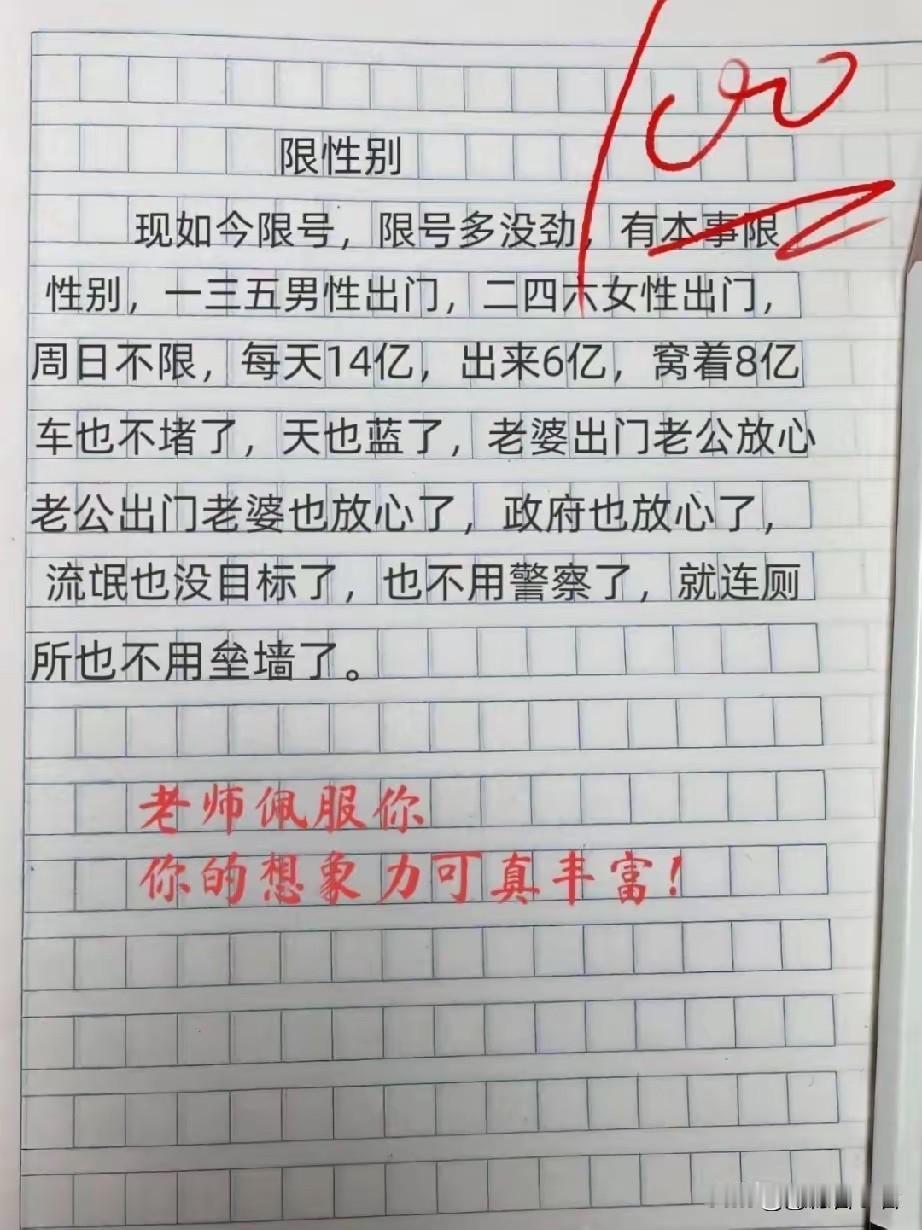 100
限性别
现如今限号，限号多没劲，有本事限
性别，一三五男性出门，二四六女性出门，
周日不限，每天14亿，出来6亿，窝着8亿
车也不堵了，天也蓝了，老婆出门老公放心
老公出门老婆也放心了，政府也放心了，
流氓也没目标了，也不用警察了，就连厕
所也不用垒墙了。
老师佩服你
你的想象力可真丰富！